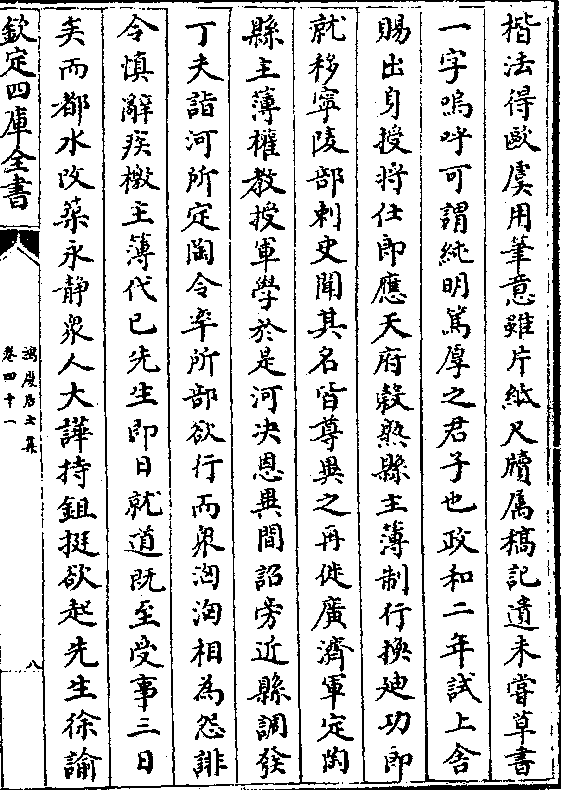 楷法得歐虞用筆意雖片紙尺牘属稿記遺未嘗草書
一字嗚呼可謂純明篤厚之君子也政和二年試上舍
賜出身授將仕郎應天府穀熟縣主薄制行換廸功郎
就移寧陵部刺史聞其名皆尊異之再徙廣濟軍定陶
縣主薄權教授軍學於是河决恩兾間詔旁近縣調發
丁夫詣河所定陶令率所部欲行而衆洶洶相為怨誹
令慎辭疾檄主薄代已先生即日就道既至受事三日
矣而都水改築永静衆人大譁持鉏挺欲起先生徐諭
欽定四庫全書
鴻慶居士集
卷四十一
八